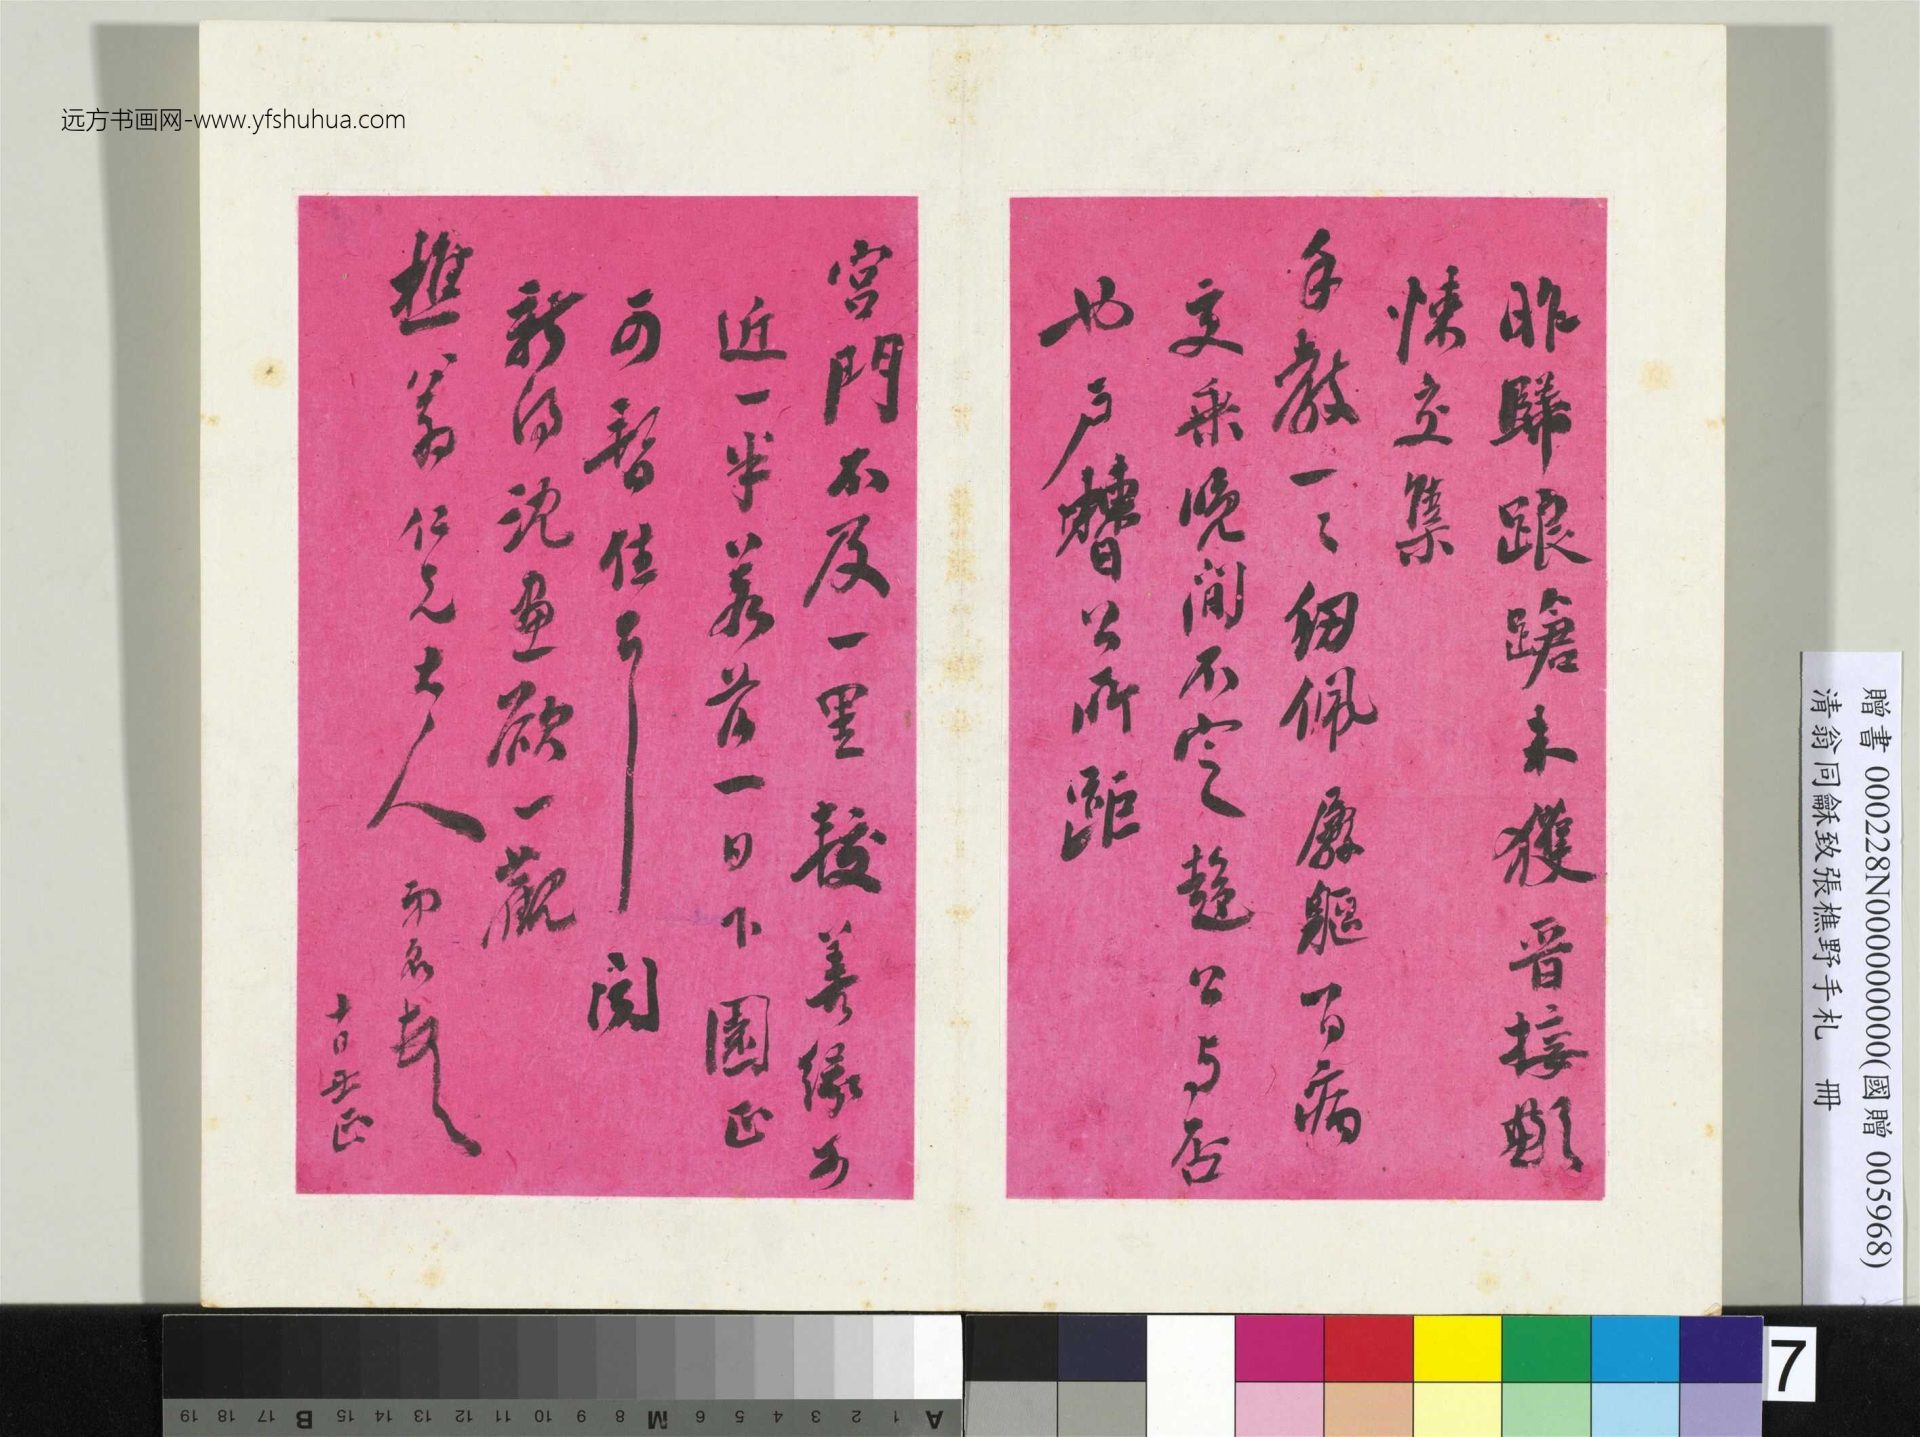 昨歸踉蹌未獲晉接慚
悚交集
手教一一紉佩賤軀百病
交乘晚間不定趨公與否
也戶
公所距
宮門不及一里較善緣可
近一半若若一日下園正
可暫住耳 聞
新得沈畫欲一觀
樵翁仁兄大人 兩名敬
十日
远方书画网-www.yfshuhua.com
贈書 000228N000000000(國贈 005968)
清翁同龢致張樵野手札 冊
A 1 2 3 4 5 6 M 8 9 10 11 12 13 14 15 B 17 18 19
7